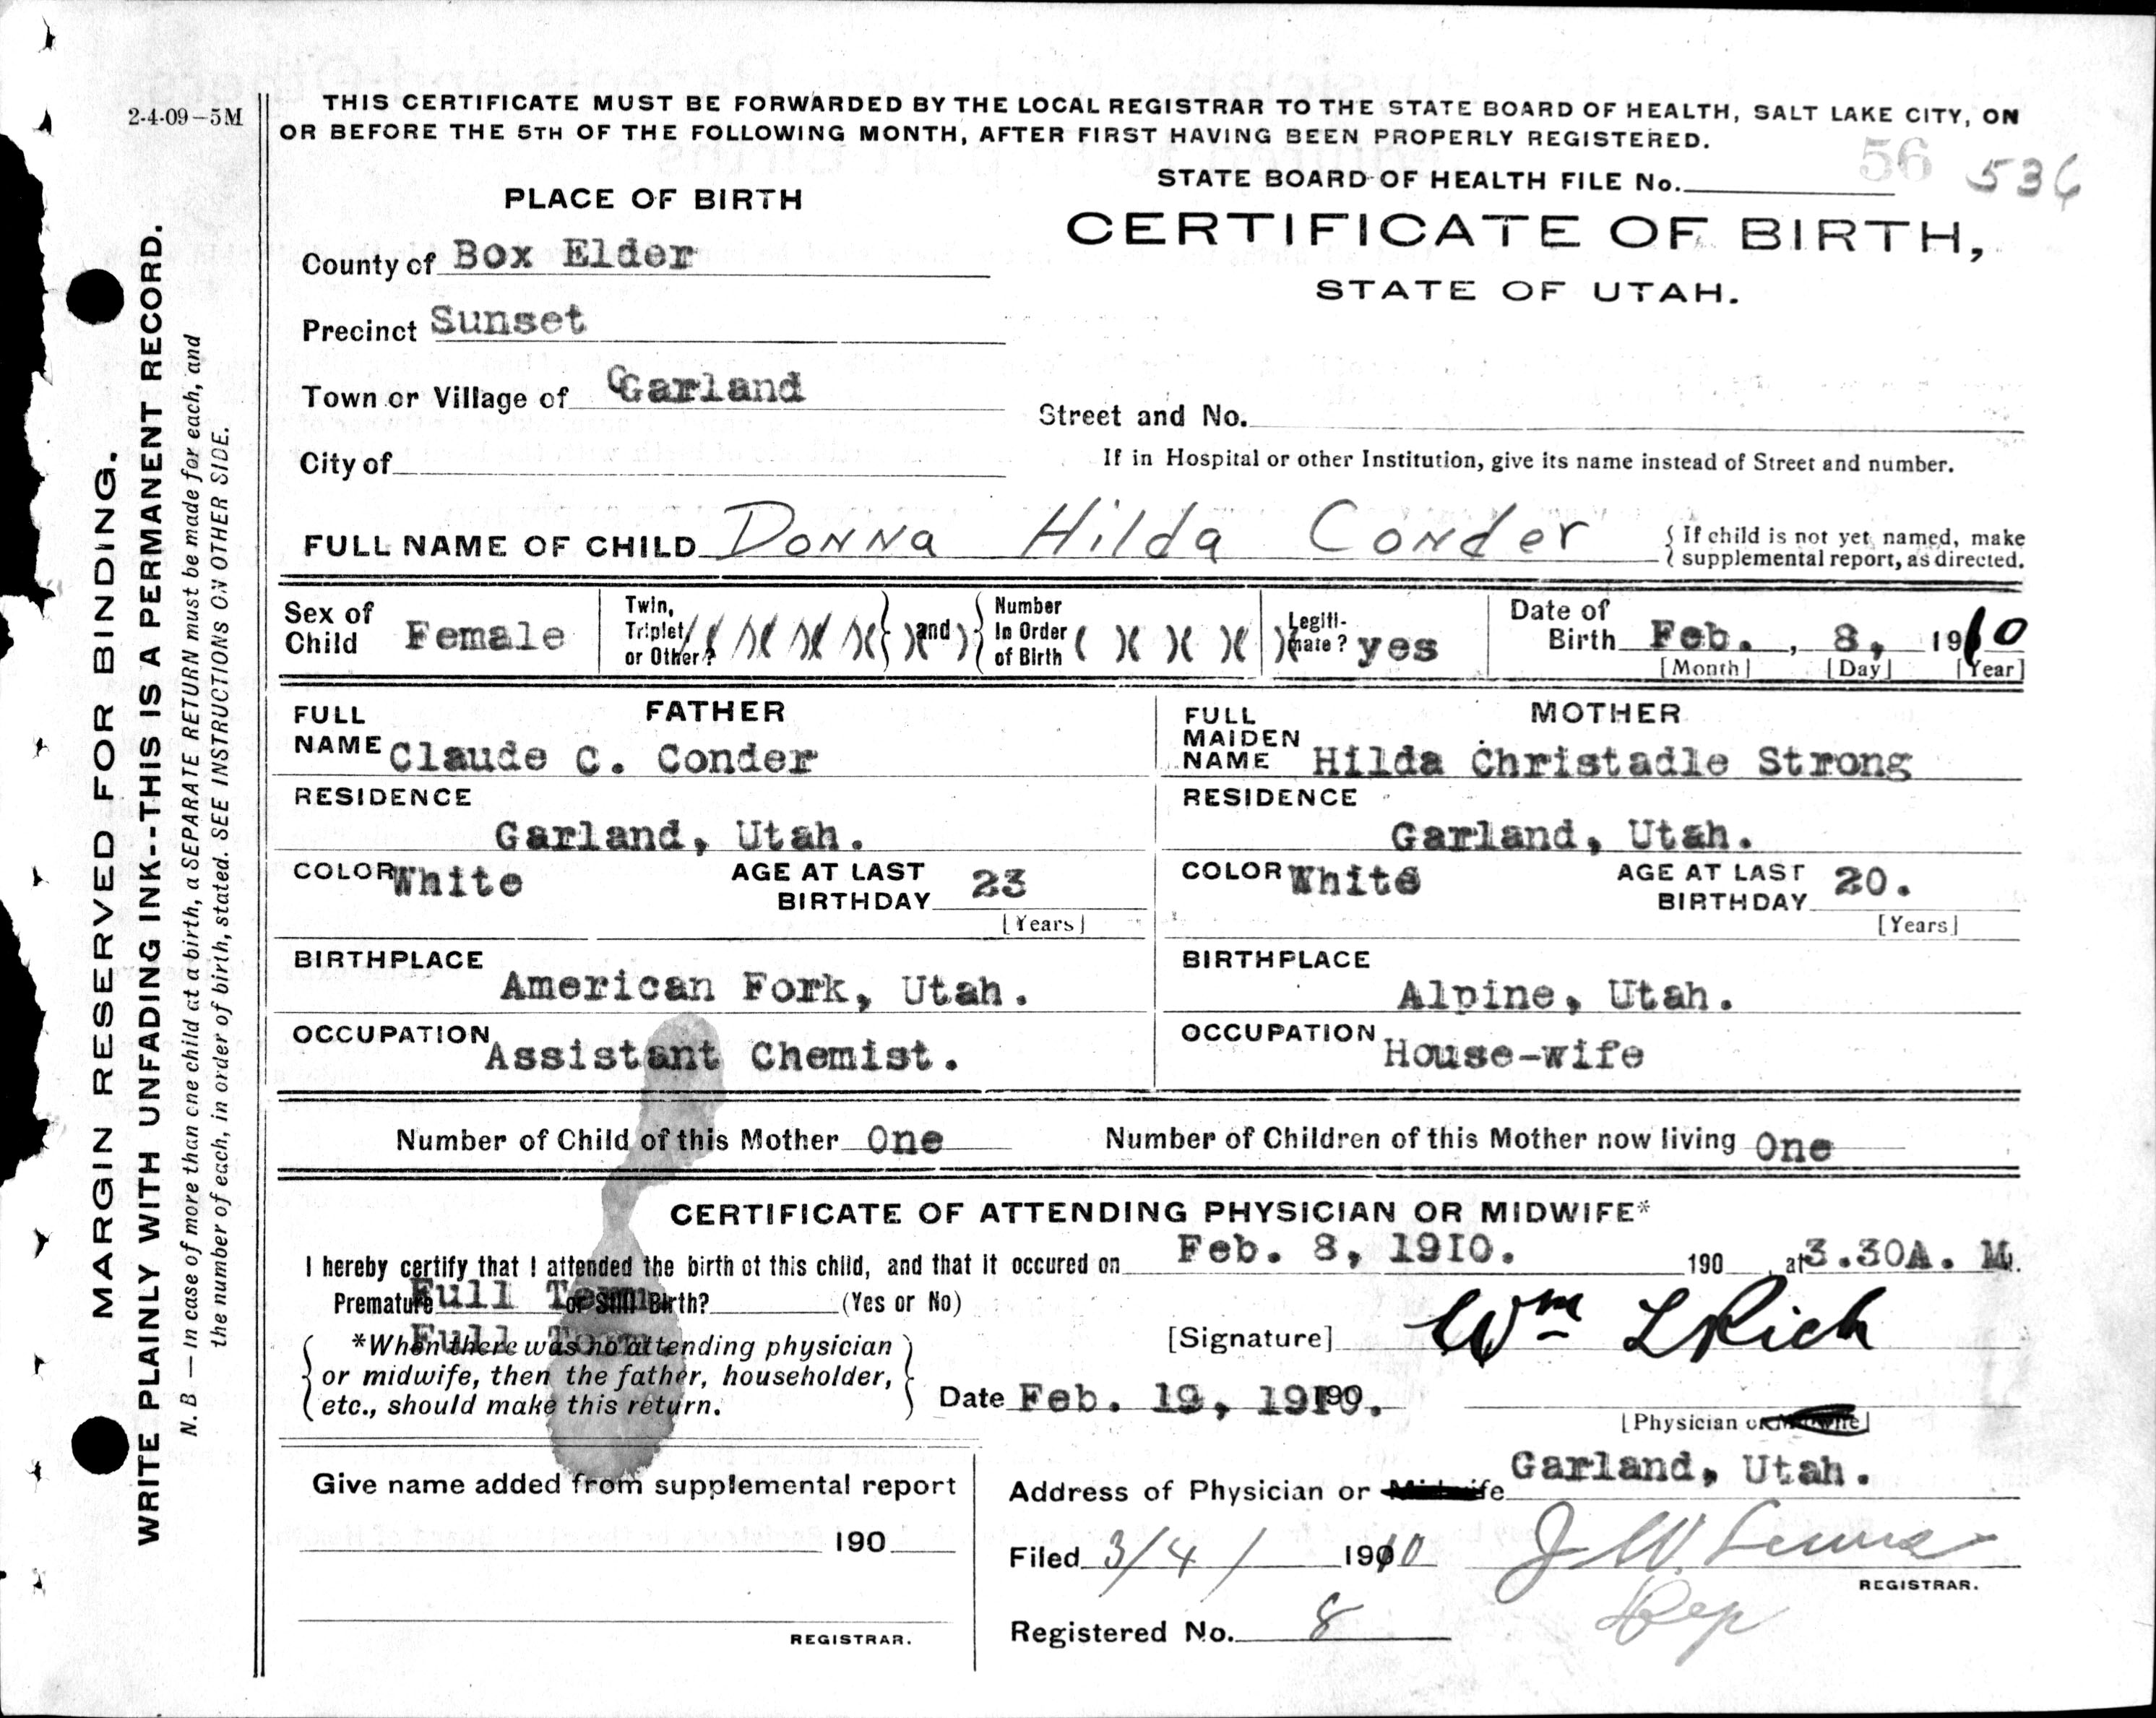 2-4-09-5M
THIS CERTIFICATE MUST BE FORWARDED BY THE LOCAL REGISTRAR TO THE STATE BOARD OF HEALTH, SALT LAKE CITY, ON
OR BEFORE THE 5TH OF THE FOLLOWING MONTH, AFTER FIRST HAVING BEEN PROPERLY REGISTERED.
56 536
STATE BOARD OF HEALTH FILE No.
CERTIFICATE OF BIRTH,
STATE OF UTAH.
PLACE OF BIRTH
County of Box Elder
Precinct Sunset
Town or Village of Garland
Street and No.
City of
If in Hospital or other Institution, give its name instead of Street and number.
FULL NAME OF CHILD Donna Hilda Conder
{ If child is not yet named, make
supplemental report, as directed.
Sex of Child Female
Twin, Triplet, or Other? and Number In Order of Birth
Legiti-mate? yes
Date of Birth Feb., 8, 1910
[Month] [Day] [Year]
FATHER
FULL NAME Claude C. Conder
RESIDENCE
Garland, Utah.
COLOR White AGE AT LAST BIRTHDAY 23
[Years]
BIRTHPLACE
American Fork, Utah.
OCCUPATION
Assistant Chemist.
MOTHER
FULL MAIDEN NAME Hilda Christadle Strong
RESIDENCE
Garland, Utah.
COLOR White AGE AT LAST BIRTHDAY 20.
[Years]
BIRTHPLACE
Alpine, Utah.
OCCUPATION
House-wife
Number of Child of this Mother One Number of Children of this Mother now living One
CERTIFICATE OF ATTENDING PHYSICIAN OR MIDWIFE*
I hereby certify that I attended the birth of this child, and that it occured on Feb. 8, 1910. 190 , at 3.30A. M.
Premature or Still Birth? (Yes or No)
Full Term
Full Term
*When there was no attending physician
or midwife, then the father, householder,
etc., should make this return.
[Signature] Wm L Rich
Date Feb. 19, 1910.
[Physician or Midwife]
Address of Physician or Midwife Garland, Utah.
Give name added from supplemental report
190
REGISTRAR.
Filed 3/4/ 1910 J W
REGISTRAR.
Dep
Registered No. 8
MARGIN RESERVED FOR BINDING.
WRITE PLAINLY WITH UNFADING INK--THIS IS A PERMANENT RECORD.
N. B — In case of more than one child at a birth, a SEPARATE RETURN must be made for each, and
the number of each, in order of birth, stated. SEE INSTRUCTIONS ON OTHER SIDE.